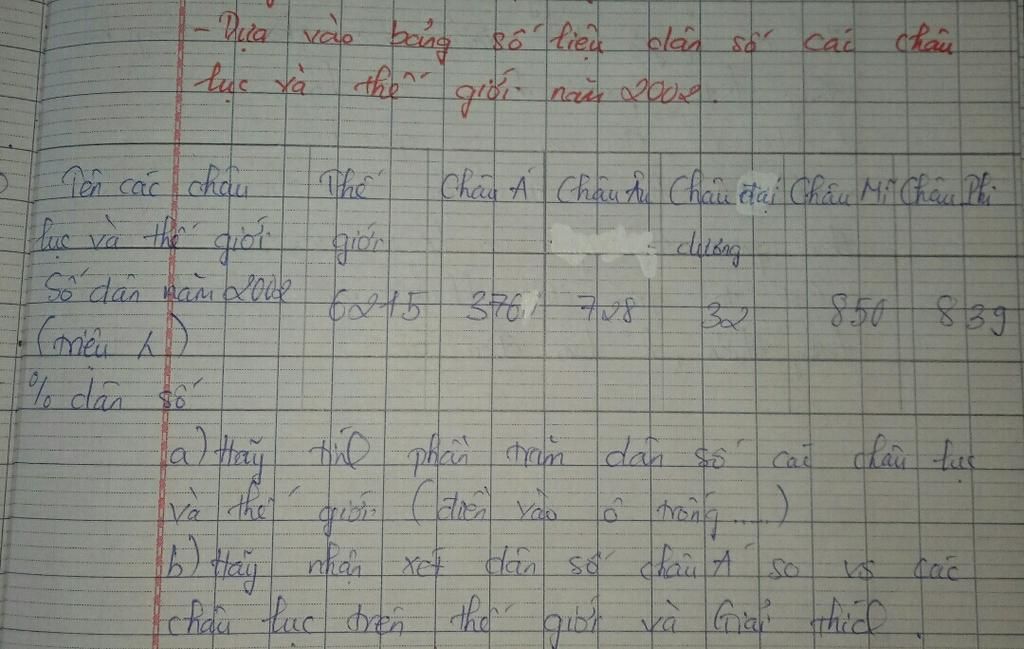 - Dựa vào bảng số liệu dân số các châu
lục và thế giới năm 2002.
Tên các châu Thế Châu Á Châu Âu Châu Đại Châu Mĩ Châu Phi
lục và thế giới giới dương
Số dân năm 2002 6215 3761 728 32 850 839
(triệu
% dân số
a) Hãy tính phần trăm dân số các châu lục
và thế giới (điền vào ô trống....)
b) Hãy nhận xét dân số châu Á so vs các
châu lục trên thế giới và Giải thích.